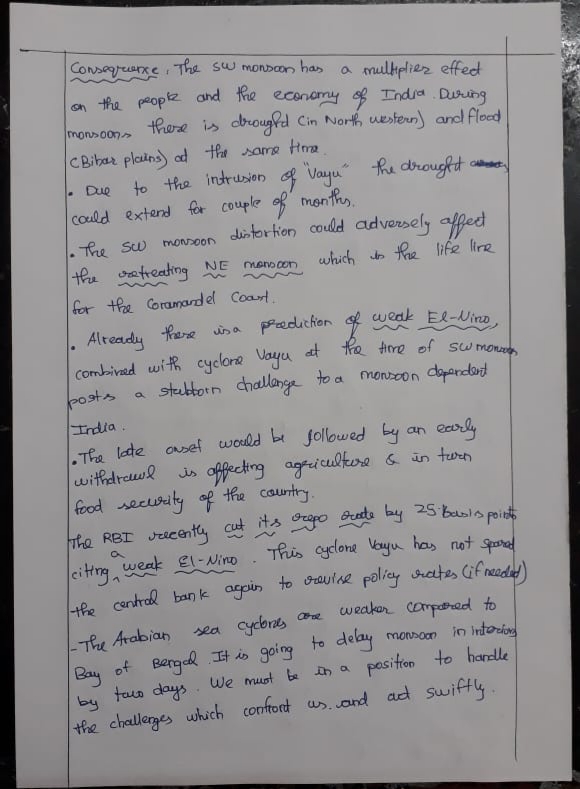 Consequence: The SW monsoon has a multiplier effect
on the people and the economy of India. During
monsoons there is drought (in North western) and flood
(Bihar plains) at the same time.
• Due to the intrusion of "Vayu" the drought
could extend for couple of months.
• The SW monsoon distortion could adversely affect
the retreating NE monsoon which is the life line
for the Coramandel Coast.
• Already there is a prediction of weak El-Nino,
combined with cyclone Vayu at the time of SW monsoon
posts a stubborn challenge to a monsoon dependent
India.
• The late onset would be followed by an early
withdrawl is affecting agriculture & in turn
food security of the country.
The RBI recently cut its repo rate by 25 basis points
citing a weak El-Nino. This cyclone Vayu has not spared
the central bank again to revise policy rates (if needed)
- The Arabian sea cyclones are weaker compared to
Bay of Bengal. It is going to delay monsoon in interiors
by two days. We must be in a position to handle
the challenges which confront us and act swiftly.